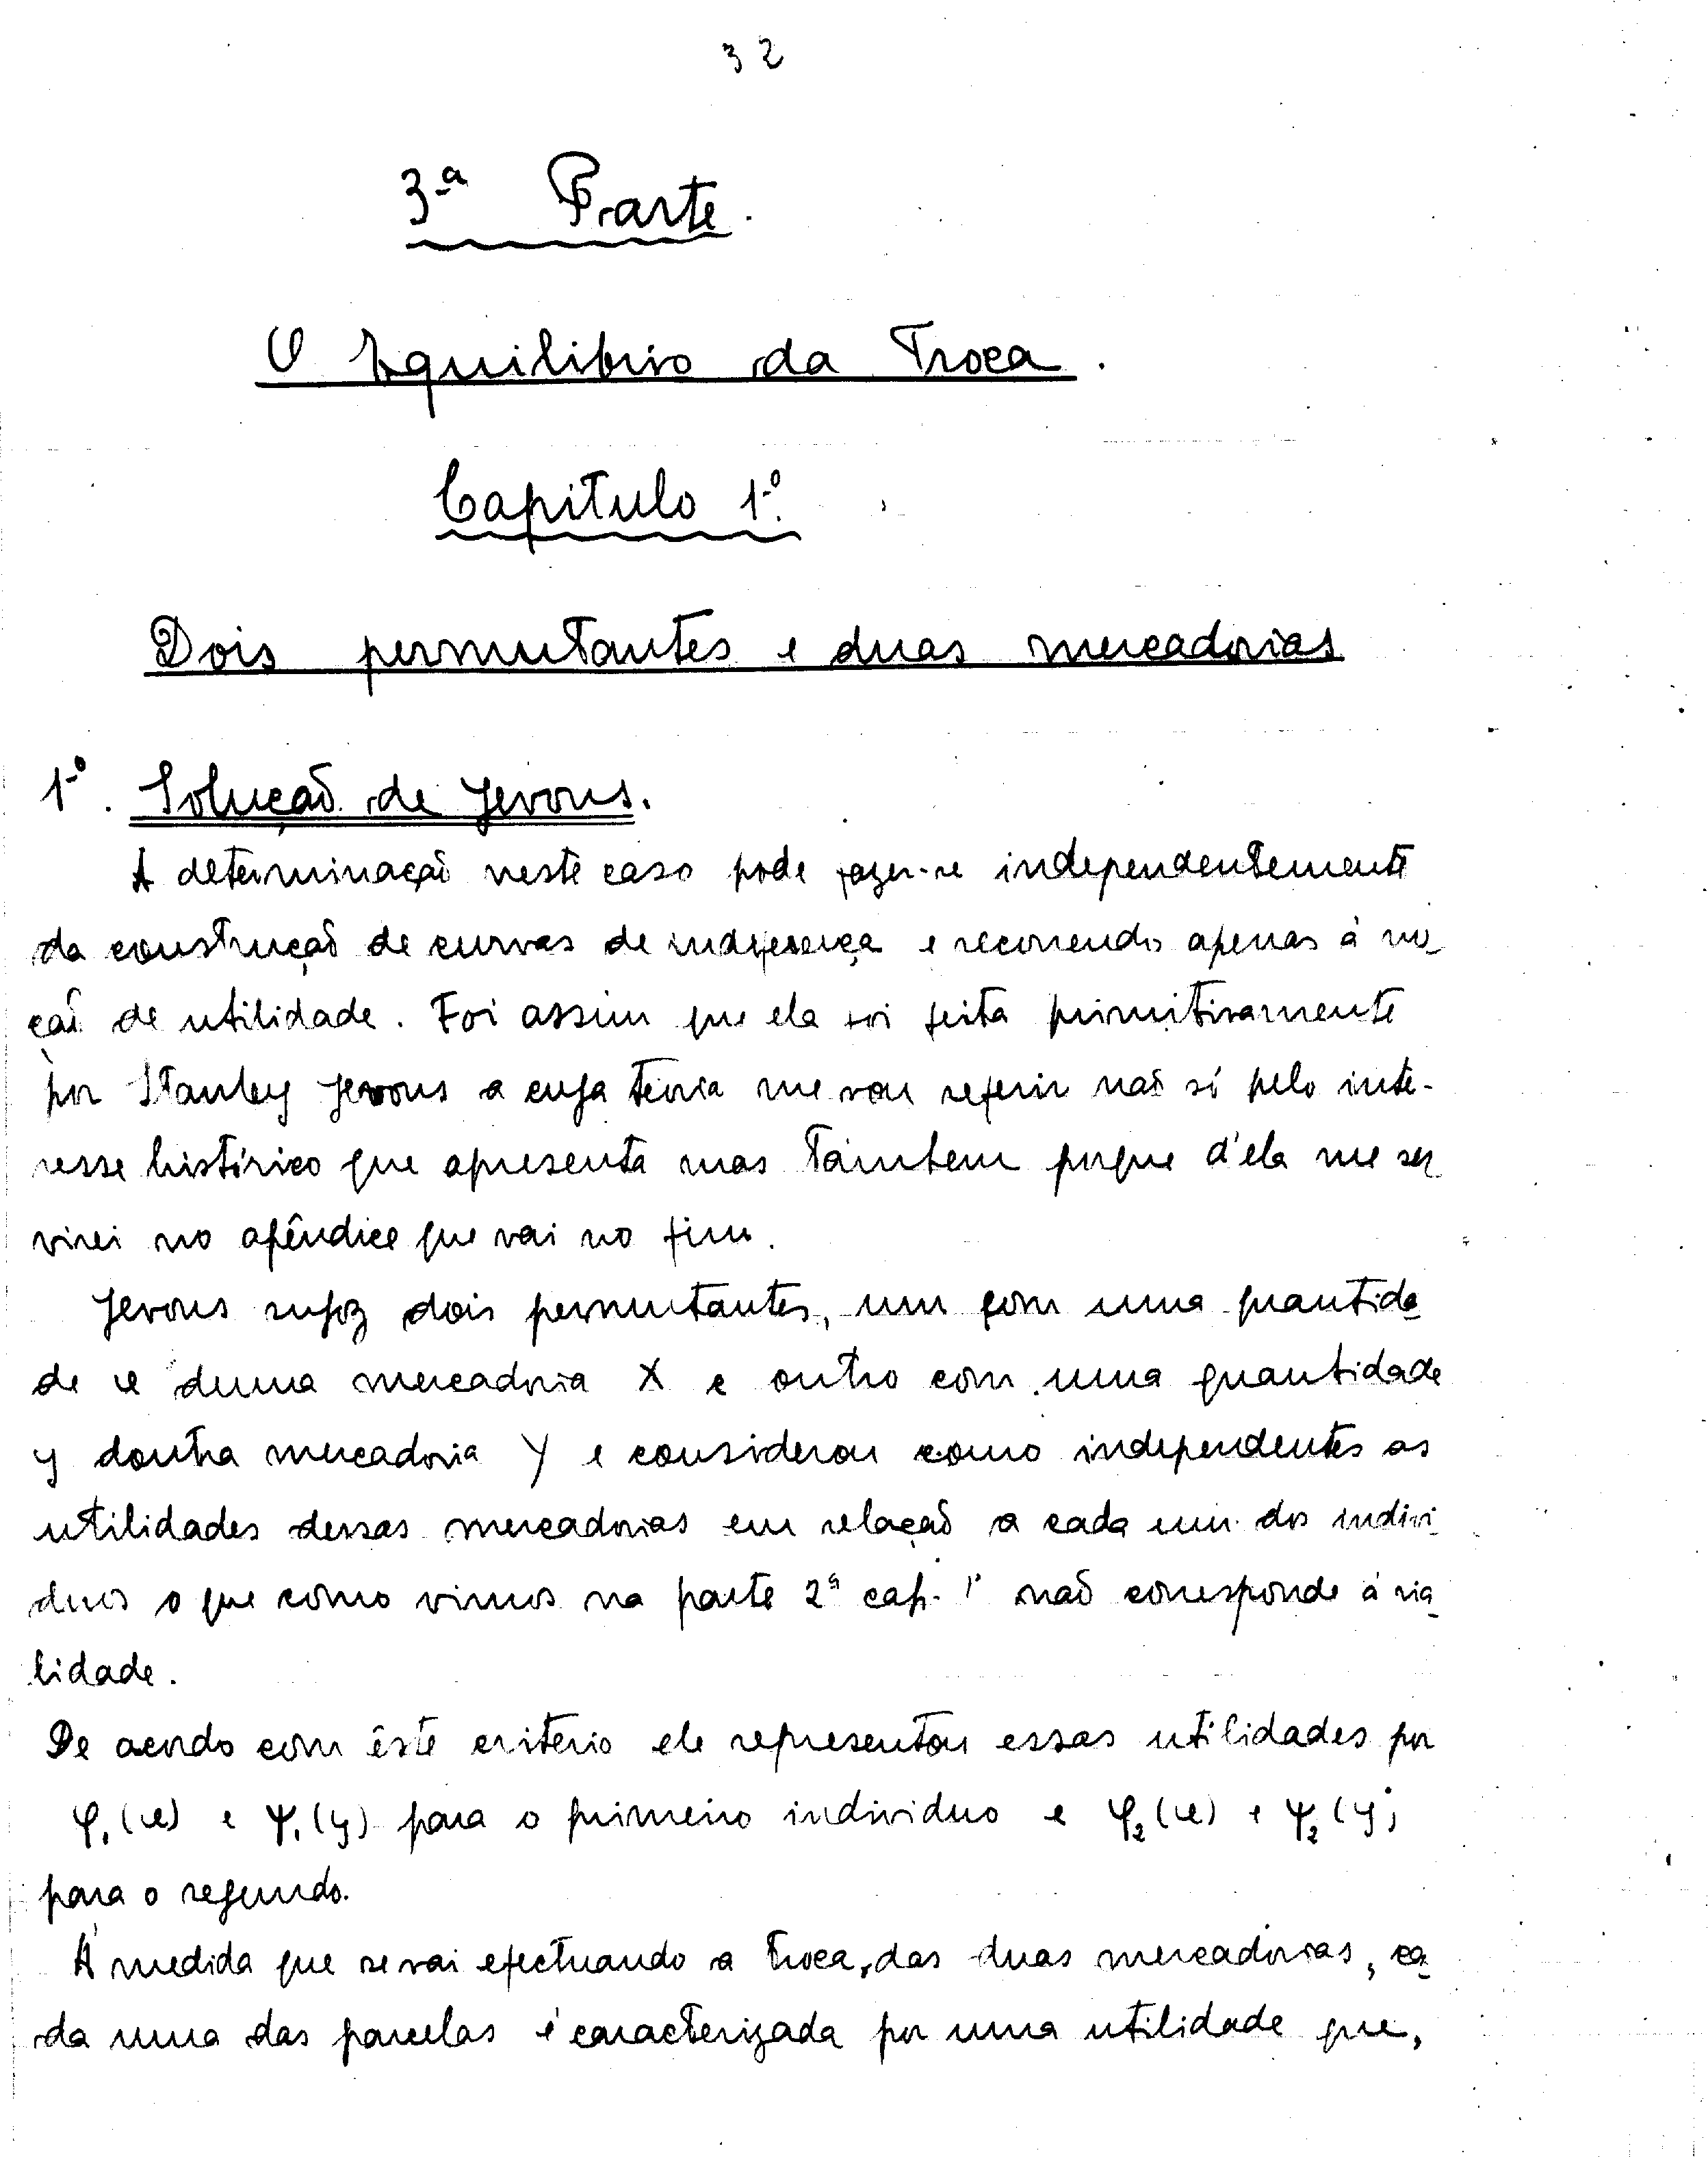 32
3ª Parte.
O Equilibrio da Troca.
Capitulo 1º.
Dois permutantes e duas mercadorias
1º. Solução de Jevons.
A determinação neste caso pode fazer-se independentemente
da construção de curvas de indiferença e recorrendo apenas à no
ção de utilidade. Foi assim que ela foi feita primitivamente
por Stanley Jevons a cuja teoria me vou referir não só pelo inte-
resse histórico que apresenta mas tambem porque d'ela me ser
virei no apêndice que vai no fim.
Jevons supoz dois permutantes, um com uma quantida
de x duma mercadoria X e outro com uma quantidade
y doutra mercadoria Y e considerou como independentes as
utilidades dessas mercadorias em relação a cada um dos indivi
duos o que como vimos na parte 2ª cap. 1º não corresponde à ria
lidade.
De acordo com êste critério ele representou essas utilidades por
φ₁(x) e ψ₁(y) para o primeiro individuo e φ₂(x) e ψ₂(y)
para o segundo.
À medida que se vai efectuando a troca, das duas mercadorias, ca
da uma das parcelas é caracterizada por uma utilidade que,